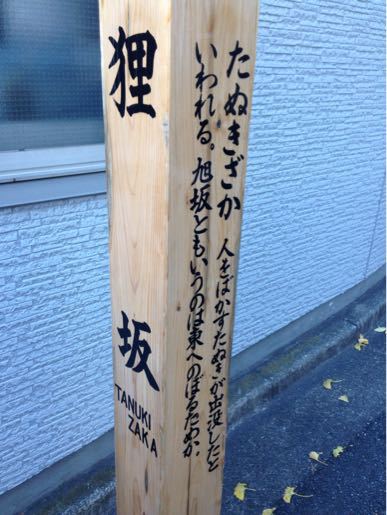 狸坂
TANUKI
ZAKA
たぬきざか 人をばかすたぬきが出没したと
いわれる。旭坂ともいうのは東へのぼるためか。